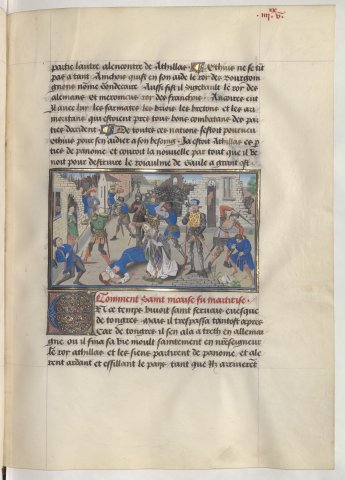 partie lautre alencontre de Athillas Ethius ne se tut
pas a tant Ainchois quist en son aide le roy des Bourgon
gnons nomme Gondecaire Aussi fist il Singebault le roy des
alemans et meroueus roy des franchois Ancores eut
il auec luy les sarmates les briois les bretons et les ar
moricans qui estoient pres tous bons combatans des par
ties doccident De toutes ces nations sestoit pourueu
ethius pour sen aidier a son besoing Ja estoit Athillas es p
ties de panome et couroit la nouuelle par tout que il ve
noit pour destruire le roiaulme de Gaule a grant ost
Comment saint nicaise fu martirise
En ce temps viuoit saint seruais euesque
de tongres mais il trespassa tantost apres
Car de tongres il sen ala a treth en allemai
gne ou il fina sa vie moult saintement en nostreseigneur
le roy athillas et les siens partirent de panome et ale
rent ardant et essillant le pays tant que Ilz arriuerent